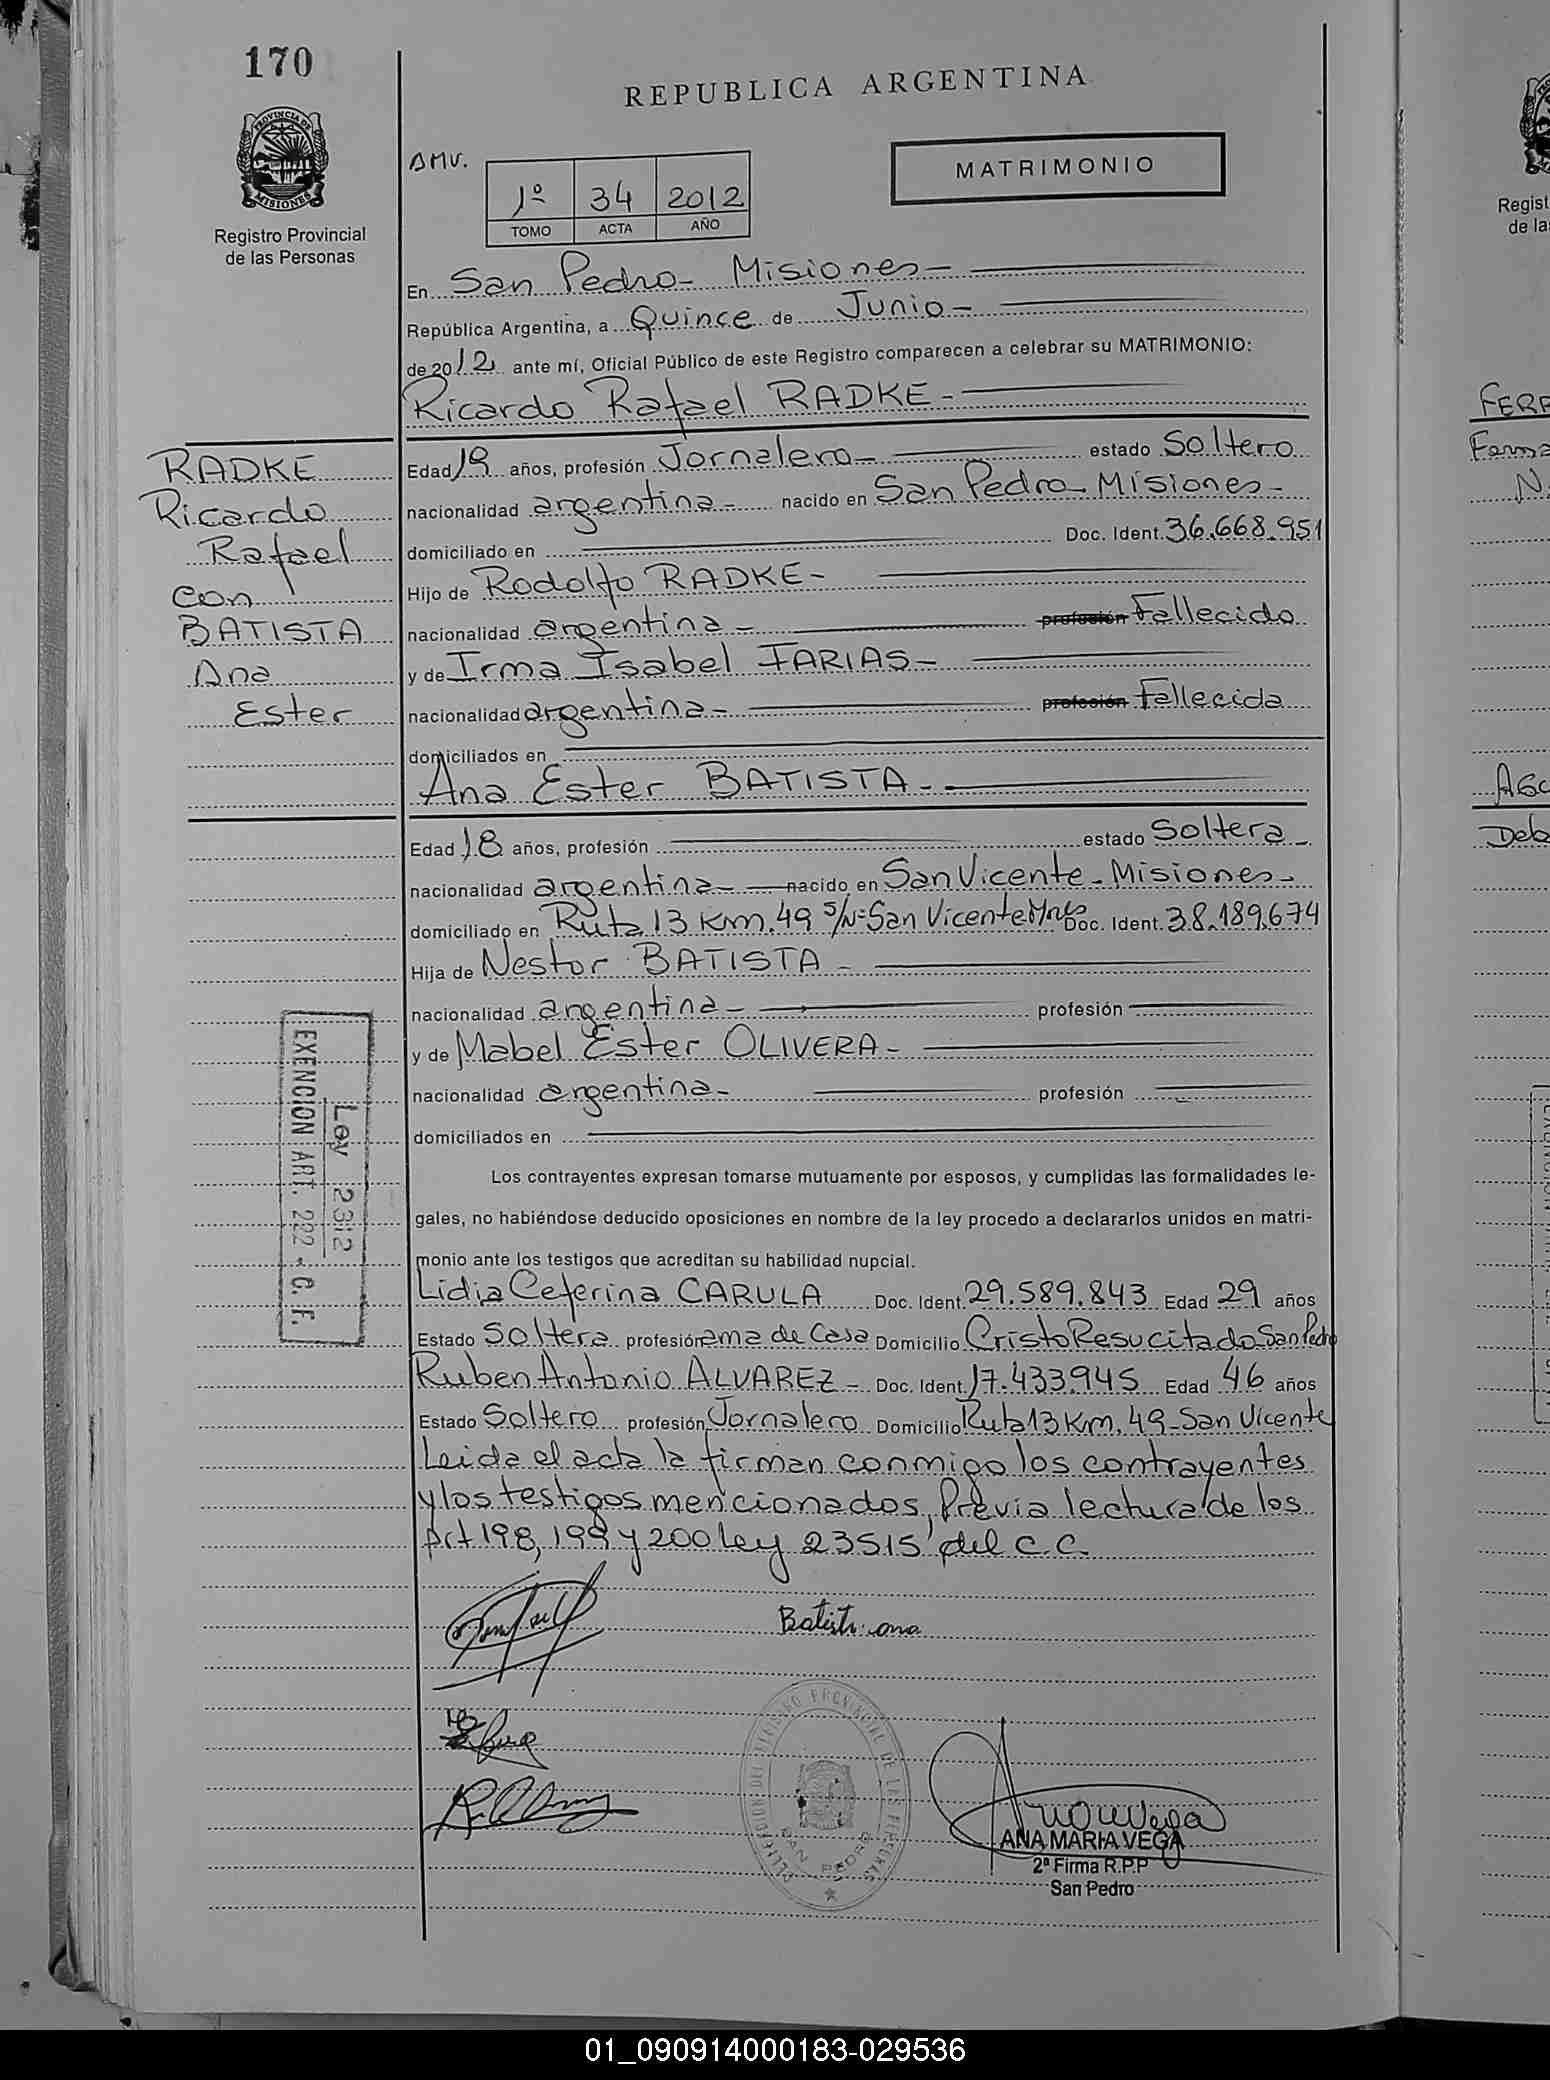 170
REPUBLICA ARGENTINA
PROVINCIA DE MISIONES
Registro Provincial
de las Personas
AMV.
1º 34 2012
TOMO ACTA AÑO
MATRIMONIO
En San Pedro - Misiones -
República Argentina, a Quince de Junio -
de 2012 ante mí, Oficial Público de este Registro comparecen a celebrar su MATRIMONIO:
Ricardo Rafael RADKE -
RADKE
Ricardo
Rafael
con
BATISTA
Ana
Ester
Edad 19 años, profesión Jornalero - estado Soltero
nacionalidad argentina - nacido en San Pedro - Misiones -
domiciliado en Doc. Ident. 36.668.951
Hijo de Rodolfo RADKE -
nacionalidad argentina - profesión Fallecido
y de Irma Isabel FARIAS -
nacionalidad argentina - profesión Fallecida
domiciliados en
Ana Ester BATISTA -
Edad 18 años, profesión estado Soltera -
nacionalidad argentina - nacido en San Vicente - Misiones -
domiciliado en Ruta 13 Km. 49 S/N= San Vicente Mnes Doc. Ident. 38.189.674
Hija de Nestor BATISTA -
nacionalidad argentina - profesión
y de Mabel Ester OLIVERA -
nacionalidad argentina - profesión
domiciliados en
Ley 2312
EXENCION ART. 222 - C. F.
Los contrayentes expresan tomarse mutuamente por esposos, y cumplidas las formalidades le-
gales, no habiéndose deducido oposiciones en nombre de la ley procedo a declararlos unidos en matri-
monio ante los testigos que acreditan su habilidad nupcial.
Lidia Ceferina CARULA Doc. Ident. 29.589.843 Edad 29 años
Estado Soltera profesión ama de Casa Domicilio Cristo Resucitado San Pedro
Ruben Antonio ALVAREZ - Doc. Ident. 17.433.945 Edad 46 años
Estado Soltero profesión Jornalero Domicilio Ruta 13 Km. 49 - San Vicente
Leida el acta la firman conmigo los contrayentes
y los testigos mencionados, Previa lectura de los
Art 198, 199 y 200 ley 23515 del C.C.
Batista ana
DELEGACION DEL REGISTRO PROVINCIAL DE LAS PERSONAS
SAN PEDRO
ANA MARIA VEGA
2ª Firma R.P.P
San Pedro
Regist
de la
FERR
AGO
01_090914000183-029536